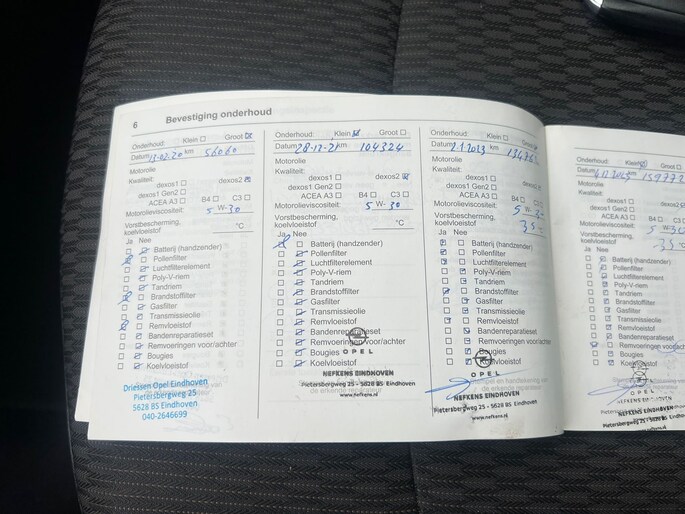 6 Bevestiging onderhoud
Onderhoud: Klein Groot
Datum 13-02-20 km 56060
Motorolie
Kwaliteit:
dexos1 dexos2
dexos1 Gen2
ACEA A3 B4 C3
Motorolieviscositeit: 5 W-30
Vorstbescherming,
koelvloeistof °C
Ja Nee
Batterij (handzender)
Pollenfilter
Luchtfilterelement
Poly-V-riem
Tandriem
Brandstoffilter
Gasfilter
Transmissieolie
Remvloeistof
Bandenreparatieset
Remvoeringen voor/achter
Bougies
Koelvloeistof
Driessen Opel Eindhoven
Pietersbergweg 25
5628 BS Eindhoven
040-2646699
Onderhoud: Klein Groot
Datum 28-12-21 km 104324
Motorolie
Kwaliteit:
dexos1 dexos2
dexos1 Gen2
ACEA A3 B4 C3
Motorolieviscositeit: 5 W-30
Vorstbescherming,
koelvloeistof °C
Ja Nee
Batterij (handzender)
Pollenfilter
Luchtfilterelement
Poly-V-riem
Tandriem
Brandstoffilter
Gasfilter
Transmissieolie
Remvloeistof
Bandenreparatieset
Remvoeringen voor/achter
Bougies
Koelvloeistof
OPEL
NEFKENS EINDHOVEN
Pietersbergweg 25 - 5628 BS Eindhoven
de erkende reparateur
www.nefkens.nl
Onderhoud: Klein Groot
Datum 2.1.2023 km
Motorolie
Kwaliteit:
dexos1 dexos2
dexos1 Gen2
ACEA A3 B4 C3
Motorolieviscositeit: 5 W-
Vorstbescherming,
koelvloeistof 35
Ja Nee
Batterij (handzender)
Pollenfilter
Luchtfilterelement
Poly-V-riem
Tandriem
Brandstoffilter
Gasfilter
Transmissieolie
Remvloeistof
Bandenreparatieset
Remvoeringen voor/achter
Bougies
Koelvloeistof
OPEL
NEFKENS EINDHOVEN
Pietersbergweg 25 - 5628 BS Eindhoven
de erkende reparateur
www.nefkens.nl
Onderhoud: Klein
Datum km
Motorolie
Kwaliteit:
dexos1 dexos2
dexos1 Gen2
ACEA A3 B4
Motorolieviscositeit:
Vorstbescherming,
koelvloeistof
Ja Nee
Batterij (handzender)
Pollenfilter
Luchtfilterelement
Poly-V-riem
Tandriem
Brandstoffilter
Gasfilter
Transmissieolie
Remvloeistof
Bandenreparatieset
Remvoeringen
Bougies
Koelvloeistof
OPEL
NEFKENS EINDHOVEN
Pietersbergweg 25 - 5628 BS Eindhoven
www.nefkens.nl